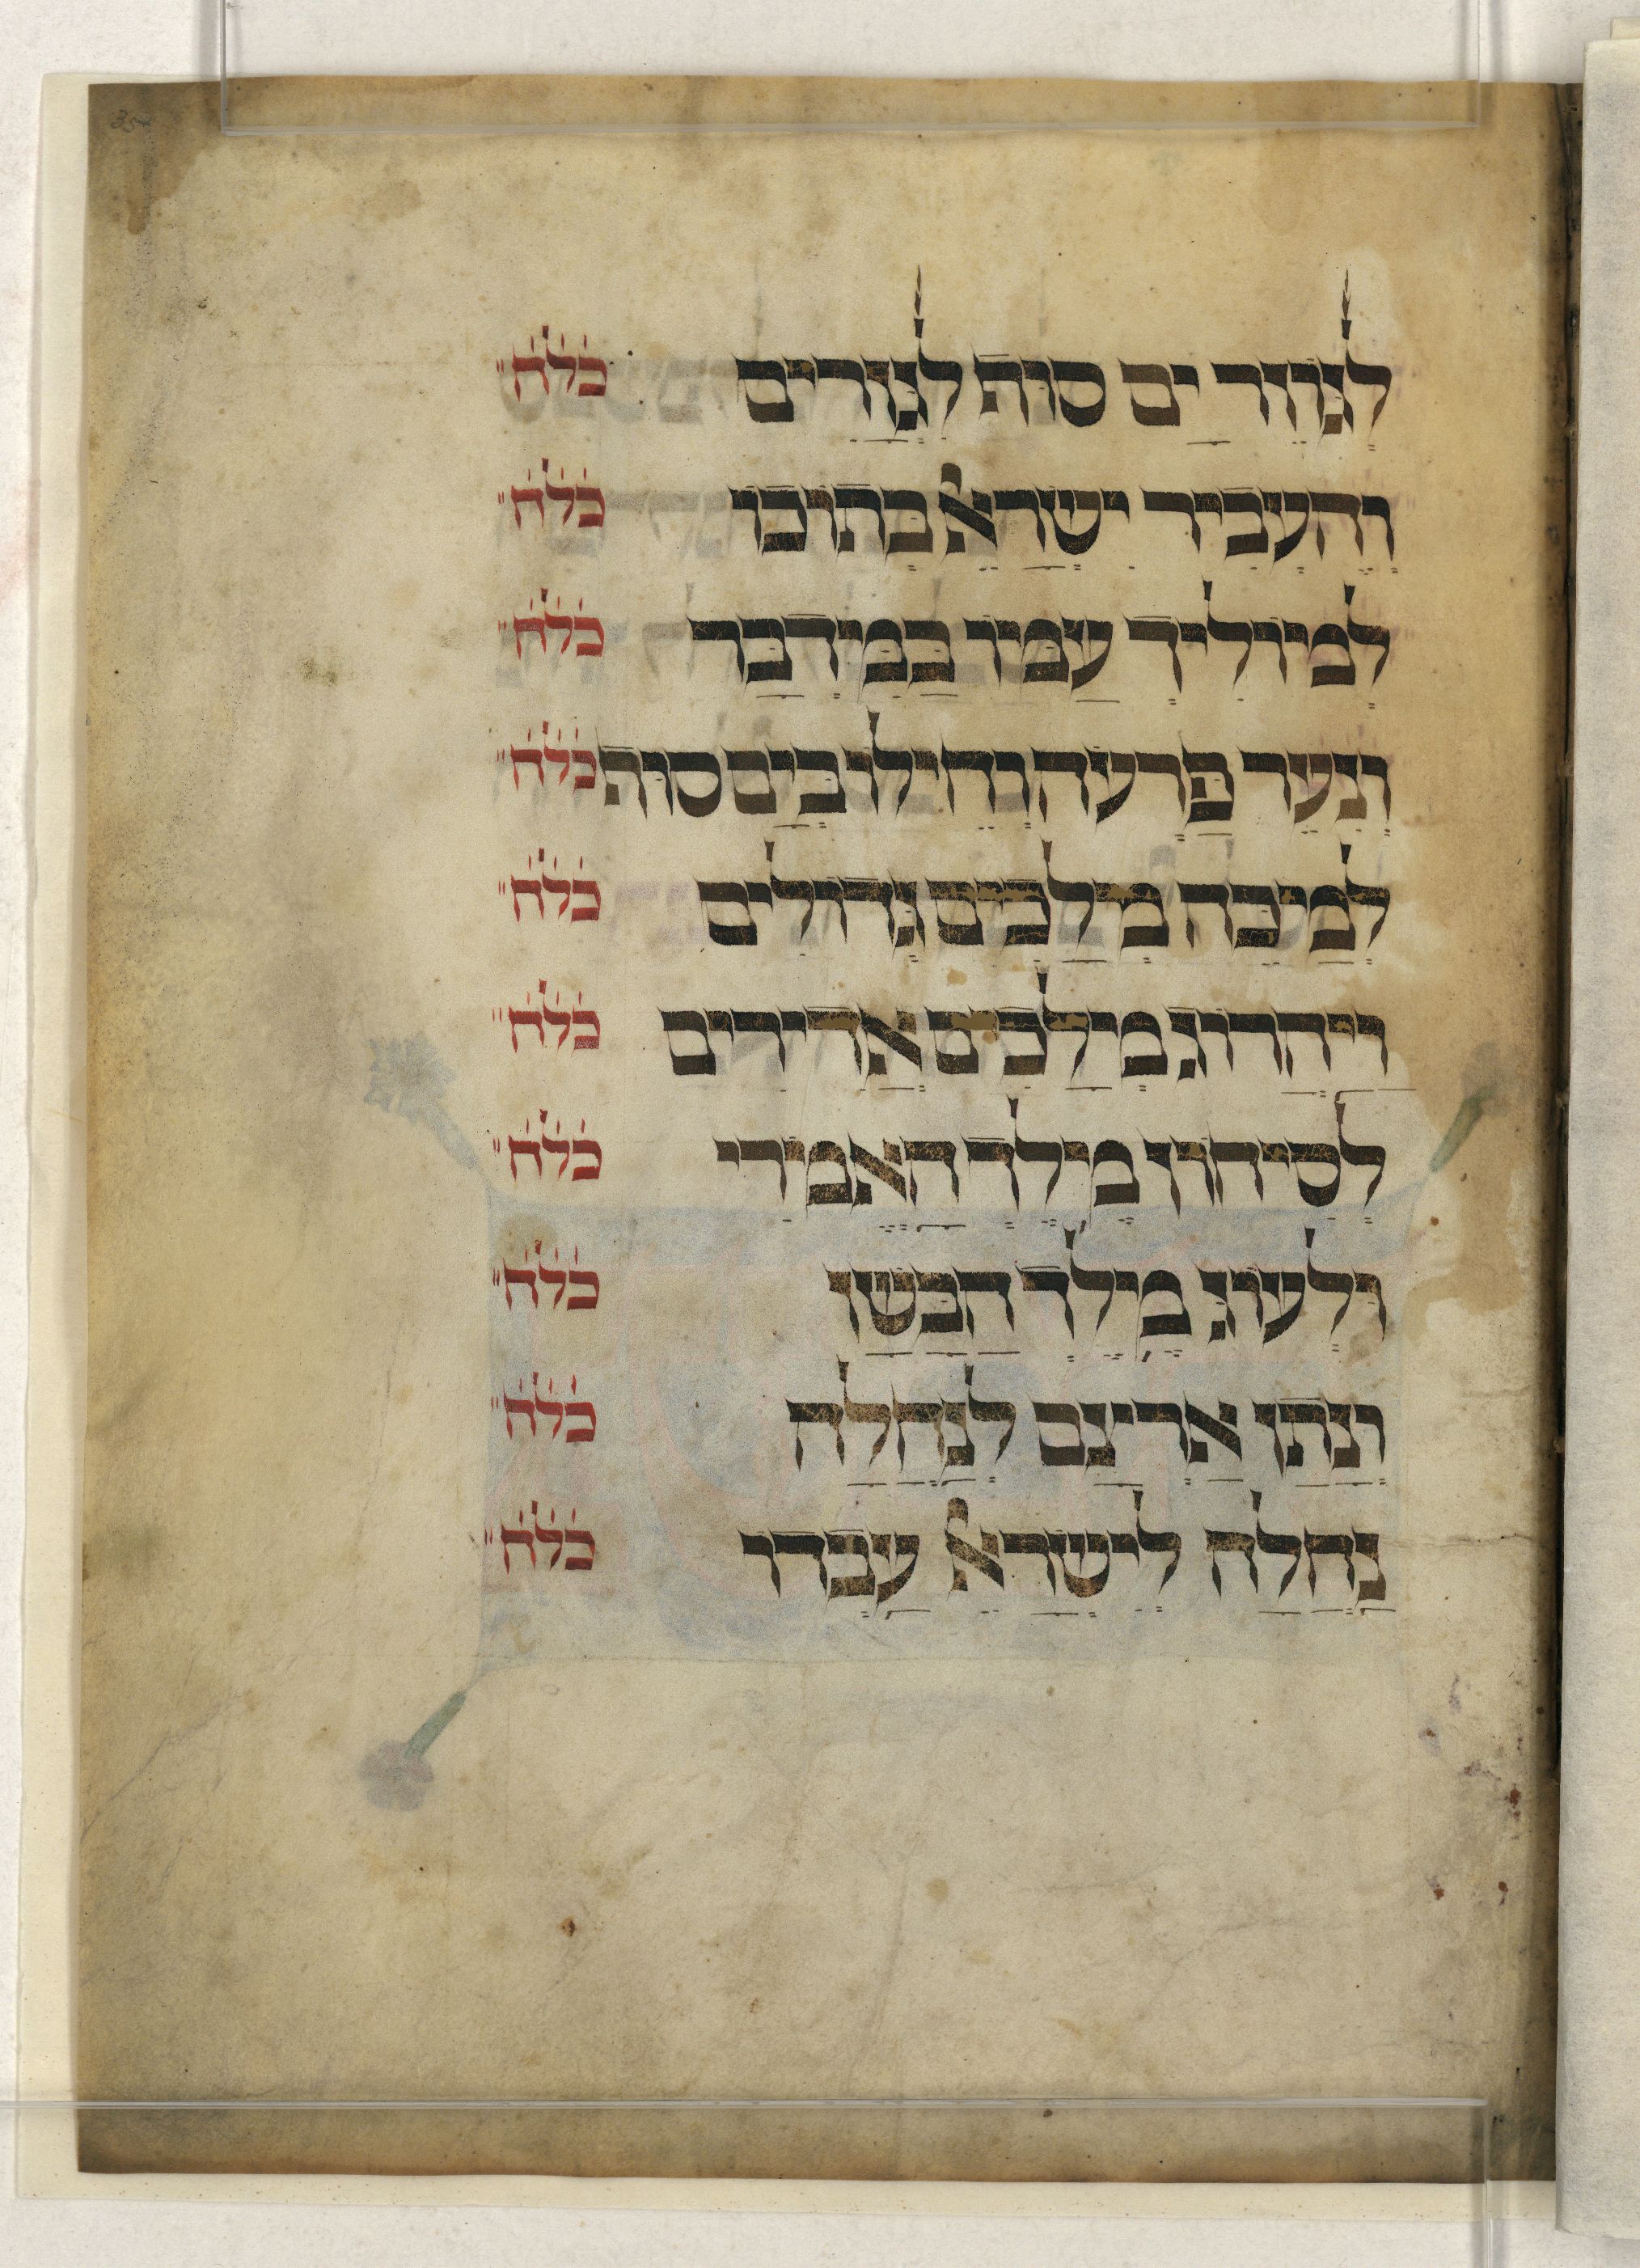 35
לְגוֹזֵר יַם סוּף לִגְזָרִים כׄלׄחׄ
וְהֶעֱבִיר יִשְׂרָאֵל בְּתוֹכוֹ כׄלׄחׄ
לְמוֹלִיךְ עַמּוֹ בַּמִּדְבָּר כׄלׄחׄ
וְנִעֵר פַּרְעֹה וְחֵילוֹ בְיַם סוּף כׄלׄחׄ
לְמַכֵּה מְלָכִים גְּדוֹלִים כׄלׄחׄ
וַיַּהֲרוֹג מְלָכִים אַדִּירִים כׄלׄחׄ
לְסִיחוֹן מֶלֶךְ הָאֱמֹרִי כׄלׄחׄ
וּלְעוֹג מֶלֶךְ הַבָּשָׁן כׄלׄחׄ
וְנָתַן אַרְצָם לְנַחֲלָה כׄלׄחׄ
נַחֲלָה לְיִשְׂרָאֵל עַבְדּוֹ כׄלׄחׄ